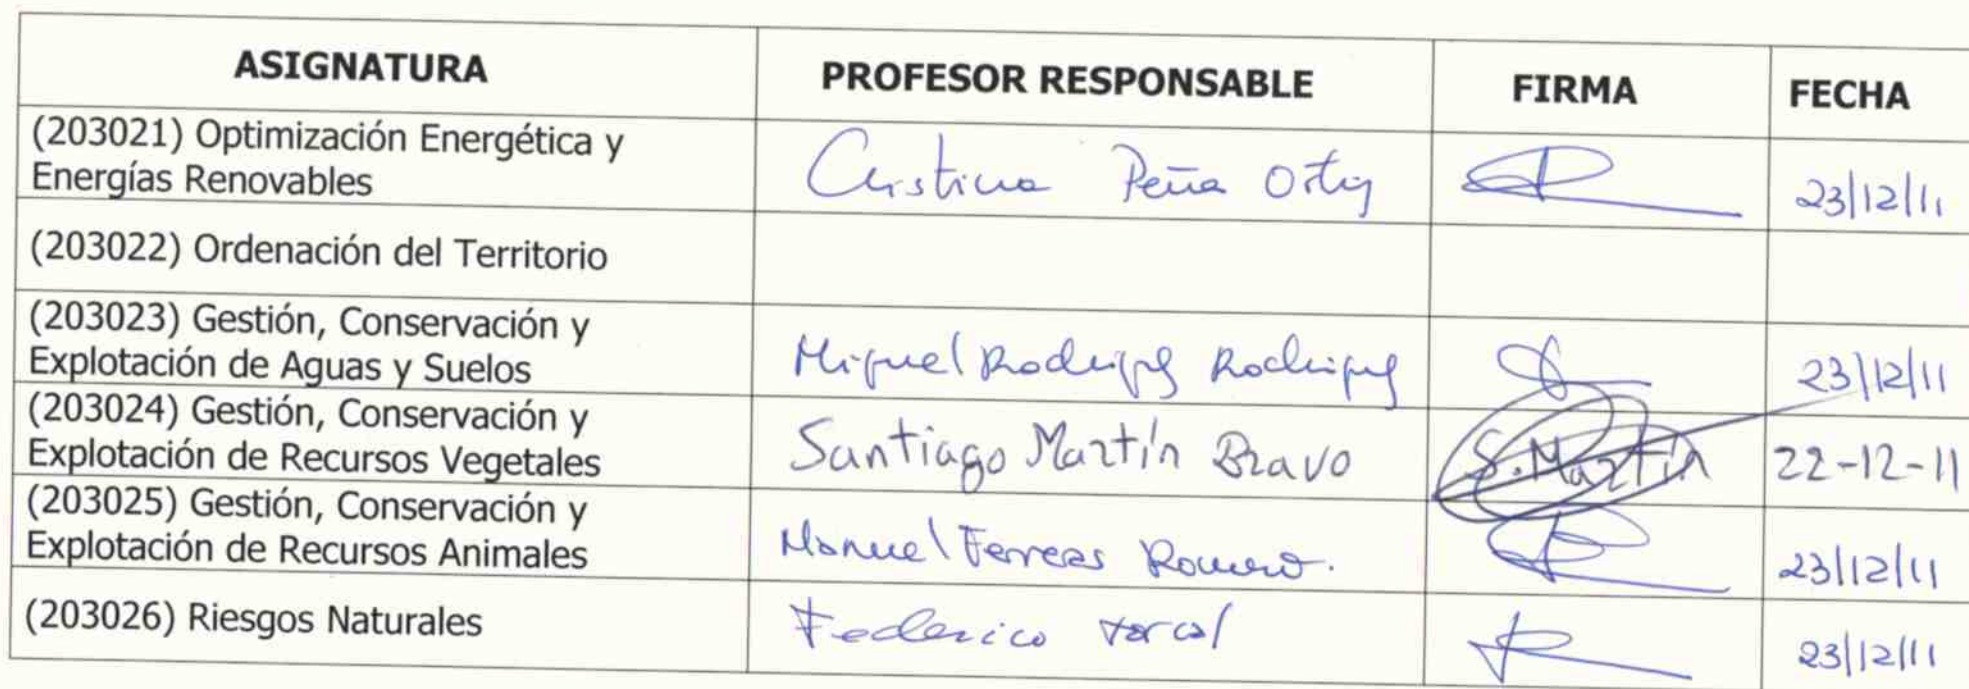 ASIGNATURA PROFESOR RESPONSABLE FIRMA FECHA
(203021) Optimización Energética y
Energías Renovables
Cristina Peña Ortiz 23/12/11
(203022) Ordenación del Territorio
(203023) Gestión, Conservación y
Explotación de Aguas y Suelos
Miguel Rodríguez Rodríguez 23/12/11
(203024) Gestión, Conservación y
Explotación de Recursos Vegetales
Santiago Martín Bravo S. Martín 22-12-11
(203025) Gestión, Conservación y
Explotación de Recursos Animales
Manuel Ferreras Romero. 23/12/11
(203026) Riesgos Naturales Federico Torcal 23/12/11